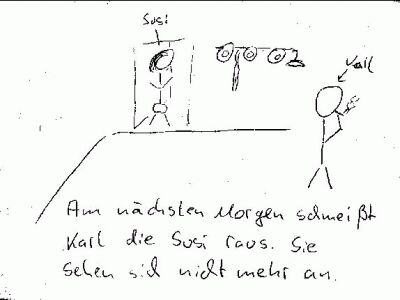 Susi
Karl
Am nächsten Morgen schmeißt
Karl die Susi raus. Sie
sehen sich nicht mehr an.